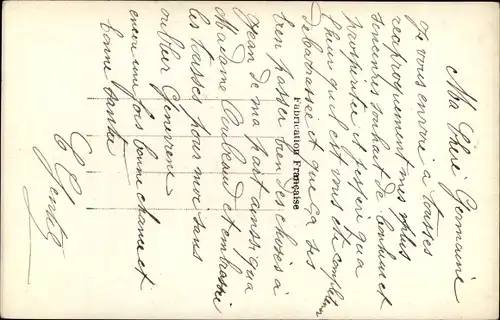 Ma Chère Germaine
Je vous envoie à toutes
réciproquement mes plus
sincères souhait de bonheur et
prospérité et j'espère qu'a
l'heur qu'il est vous ete
debarassée et que ça ses
bien passer bien des choses à
Jean de ma part ainsi qu'a
Madame et embrassé
les tousses pour moi sans
oublier Genevieve
encore une fois bonne chance et
bonne santé
Fabrication Française